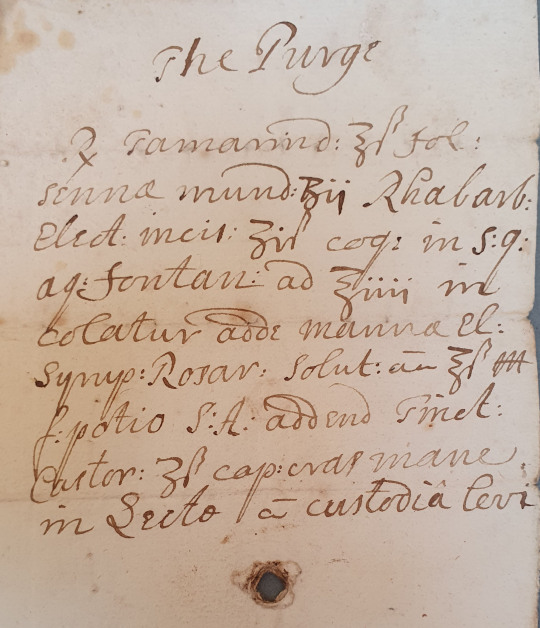 The Purge
℞ Tamarind: ℥ß fol:
sennæ mund: ʒij Rhabarb:
Elect: incis: ʒiß coq: in s:q:
aq: fontan: ad ℥iiii in
colatur adde mannæ El:
Syrup: Rosar: solut: āā ℥ß
f: potio S:A: addend Tinct:
Castor: ʒß cap: cras mane
in Lecto cū custodiâ levi